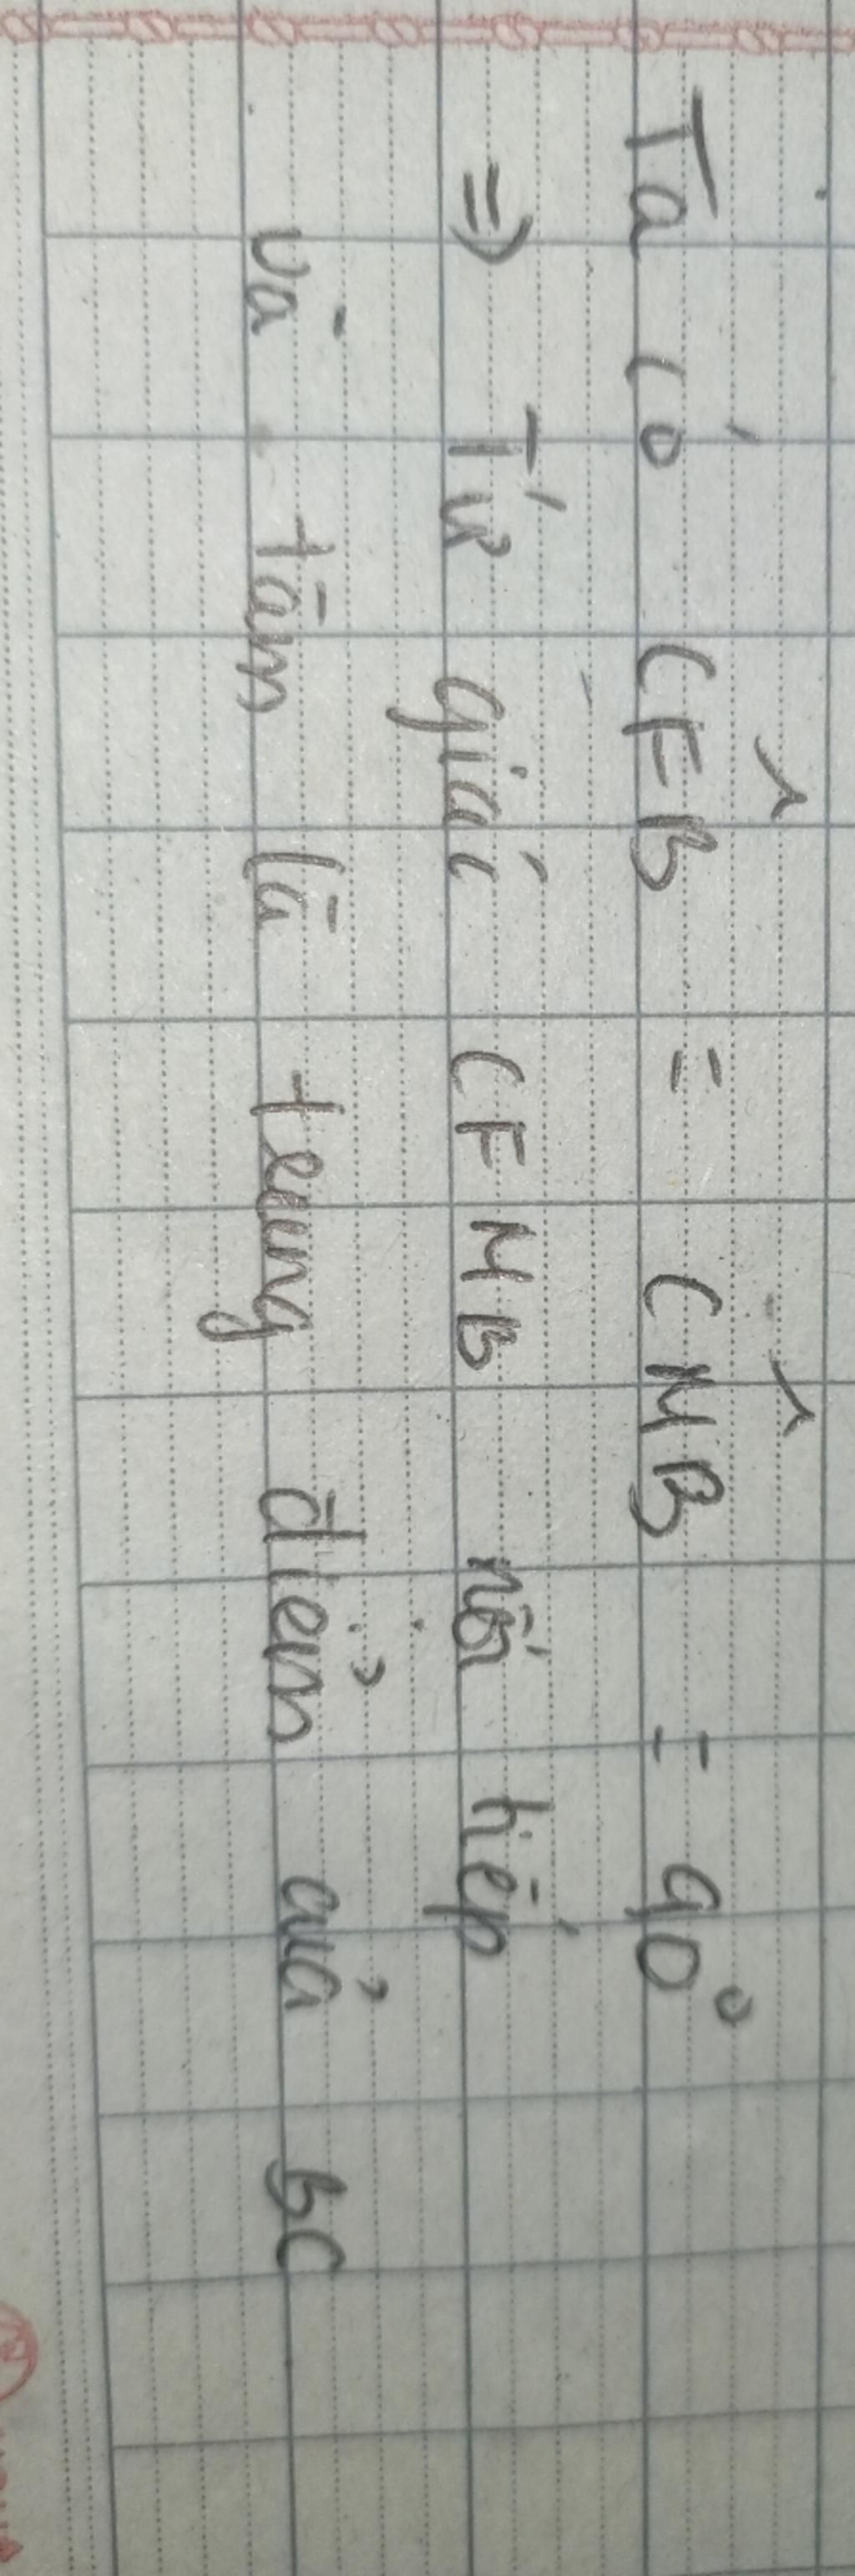 Ta có CFB̂ = CMB̂ = 90°
=> Tứ giác CFMB nội tiếp
và tâm là trung điểm của BC